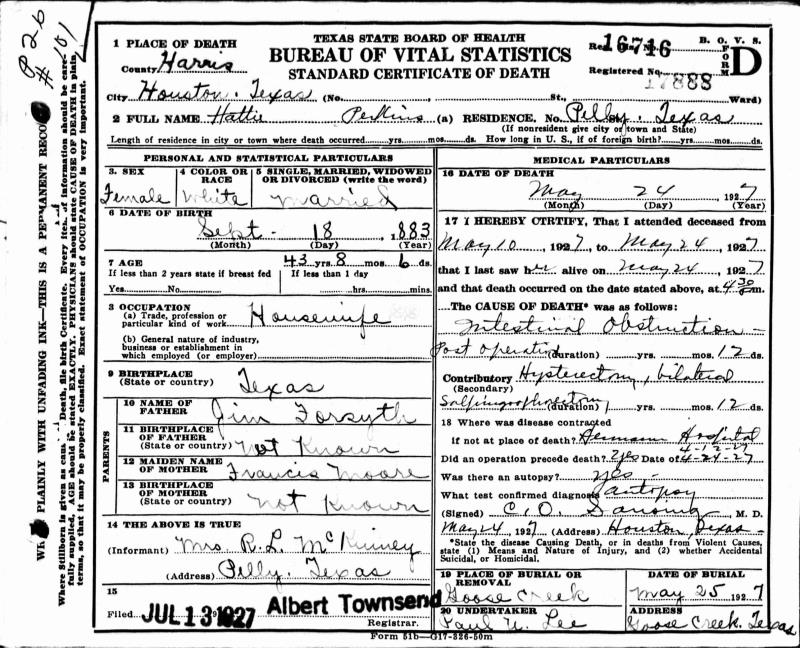 P 26
# 101
WRITE PLAINLY WITH UNFADING INK—THIS IS A PERMANENT RECORD
Where Stillborn is given as cause of Death, file birth Certificate. Every item of information should be care-
fully supplied. AGE should be stated EXACTLY. PHYSICIANS should state CAUSE OF DEATH in plain
terms, so that it may be properly classified. Exact statement of OCCUPATION is very important.
TEXAS STATE BOARD OF HEALTH
BUREAU OF VITAL STATISTICS
STANDARD CERTIFICATE OF DEATH
B. O. V. S.
FORM D
16716
Registered No. 17888
1 PLACE OF DEATH
County Harris
City Houston, Texas (No. , St., Ward)
2 FULL NAME Hattie Perkins (a) RESIDENCE. No. Pelly St. Texas
(If nonresident give city or town and State)
Length of residence in city or town where death occurred yrs. mos. ds. How long in U. S., if of foreign birth? yrs. mos. ds.
PERSONAL AND STATISTICAL PARTICULARS
3. SEX Female
4 COLOR OR RACE White
5 SINGLE, MARRIED, WIDOWED OR DIVORCED (write the word) Married
6 DATE OF BIRTH
Sept - 18, 1883
(Month) (Day) (Year)
7 AGE 43 yrs. 8 mos. 6 ds.
If less than 2 years state if breast fed If less than 1 day
Yes No hrs. mins.
8 OCCUPATION
(a) Trade, profession or
particular kind of work Housewife
(b) General nature of industry,
business or establishment in
which employed (or employer)
9 BIRTHPLACE
(State or country) Texas
PARENTS
10 NAME OF
FATHER Jim Forsyth
11 BIRTHPLACE
OF FATHER
(State or country) Not Known
12 MAIDEN NAME
OF MOTHER Francis Moore
13 BIRTHPLACE
OF MOTHER
(State or country) Not Known
14 THE ABOVE IS TRUE
(Informant) Mrs R. L. McKinney
(Address) Pelly, Texas
15
Filed JUL 13 1927 Albert Townsend
Registrar.
MEDICAL PARTICULARS
16 DATE OF DEATH
May 24 1927
(Month) (Day) (Year)
17 I HEREBY CTRTIFY, That I attended deceased from
May 10, 1927, to May 24 1927
that I last saw her alive on May 24, 1927
and that death occurred on the date stated above, at 4 30 m.
The CAUSE OF DEATH* was as follows:
Intestinal Obstruction -
Post Operative (duration) yrs. mos. 12 ds.
Contributory Hysterectomy, bilateral
(Secondary)
Salpingoophorectomy (duration) yrs. mos. 12 ds.
18 Where was disease contracted
if not at place of death? Hermann Hospital
Did an operation precede death? Yes Date of 4-12-27
4-24-27
Was there an autopsy? yes -
What test confirmed diagnosis autopsy
(Signed) C. O. M. D.
May 24, 1927 (Address) Houston, Texas -
*State the disease Causing Death, or in deaths from Violent Causes,
state (1) Means and Nature of Injury, and (2) whether Accidental
Suicidal, or Homicidal.
19 PLACE OF BURIAL OR
REMOVAL
Goose Creek
DATE OF BURIAL
May 25 1927
20 UNDERTAKER
Paul U. Lee
ADDRESS
Goose Creek, Texas
Form 51b—G17-326-50m